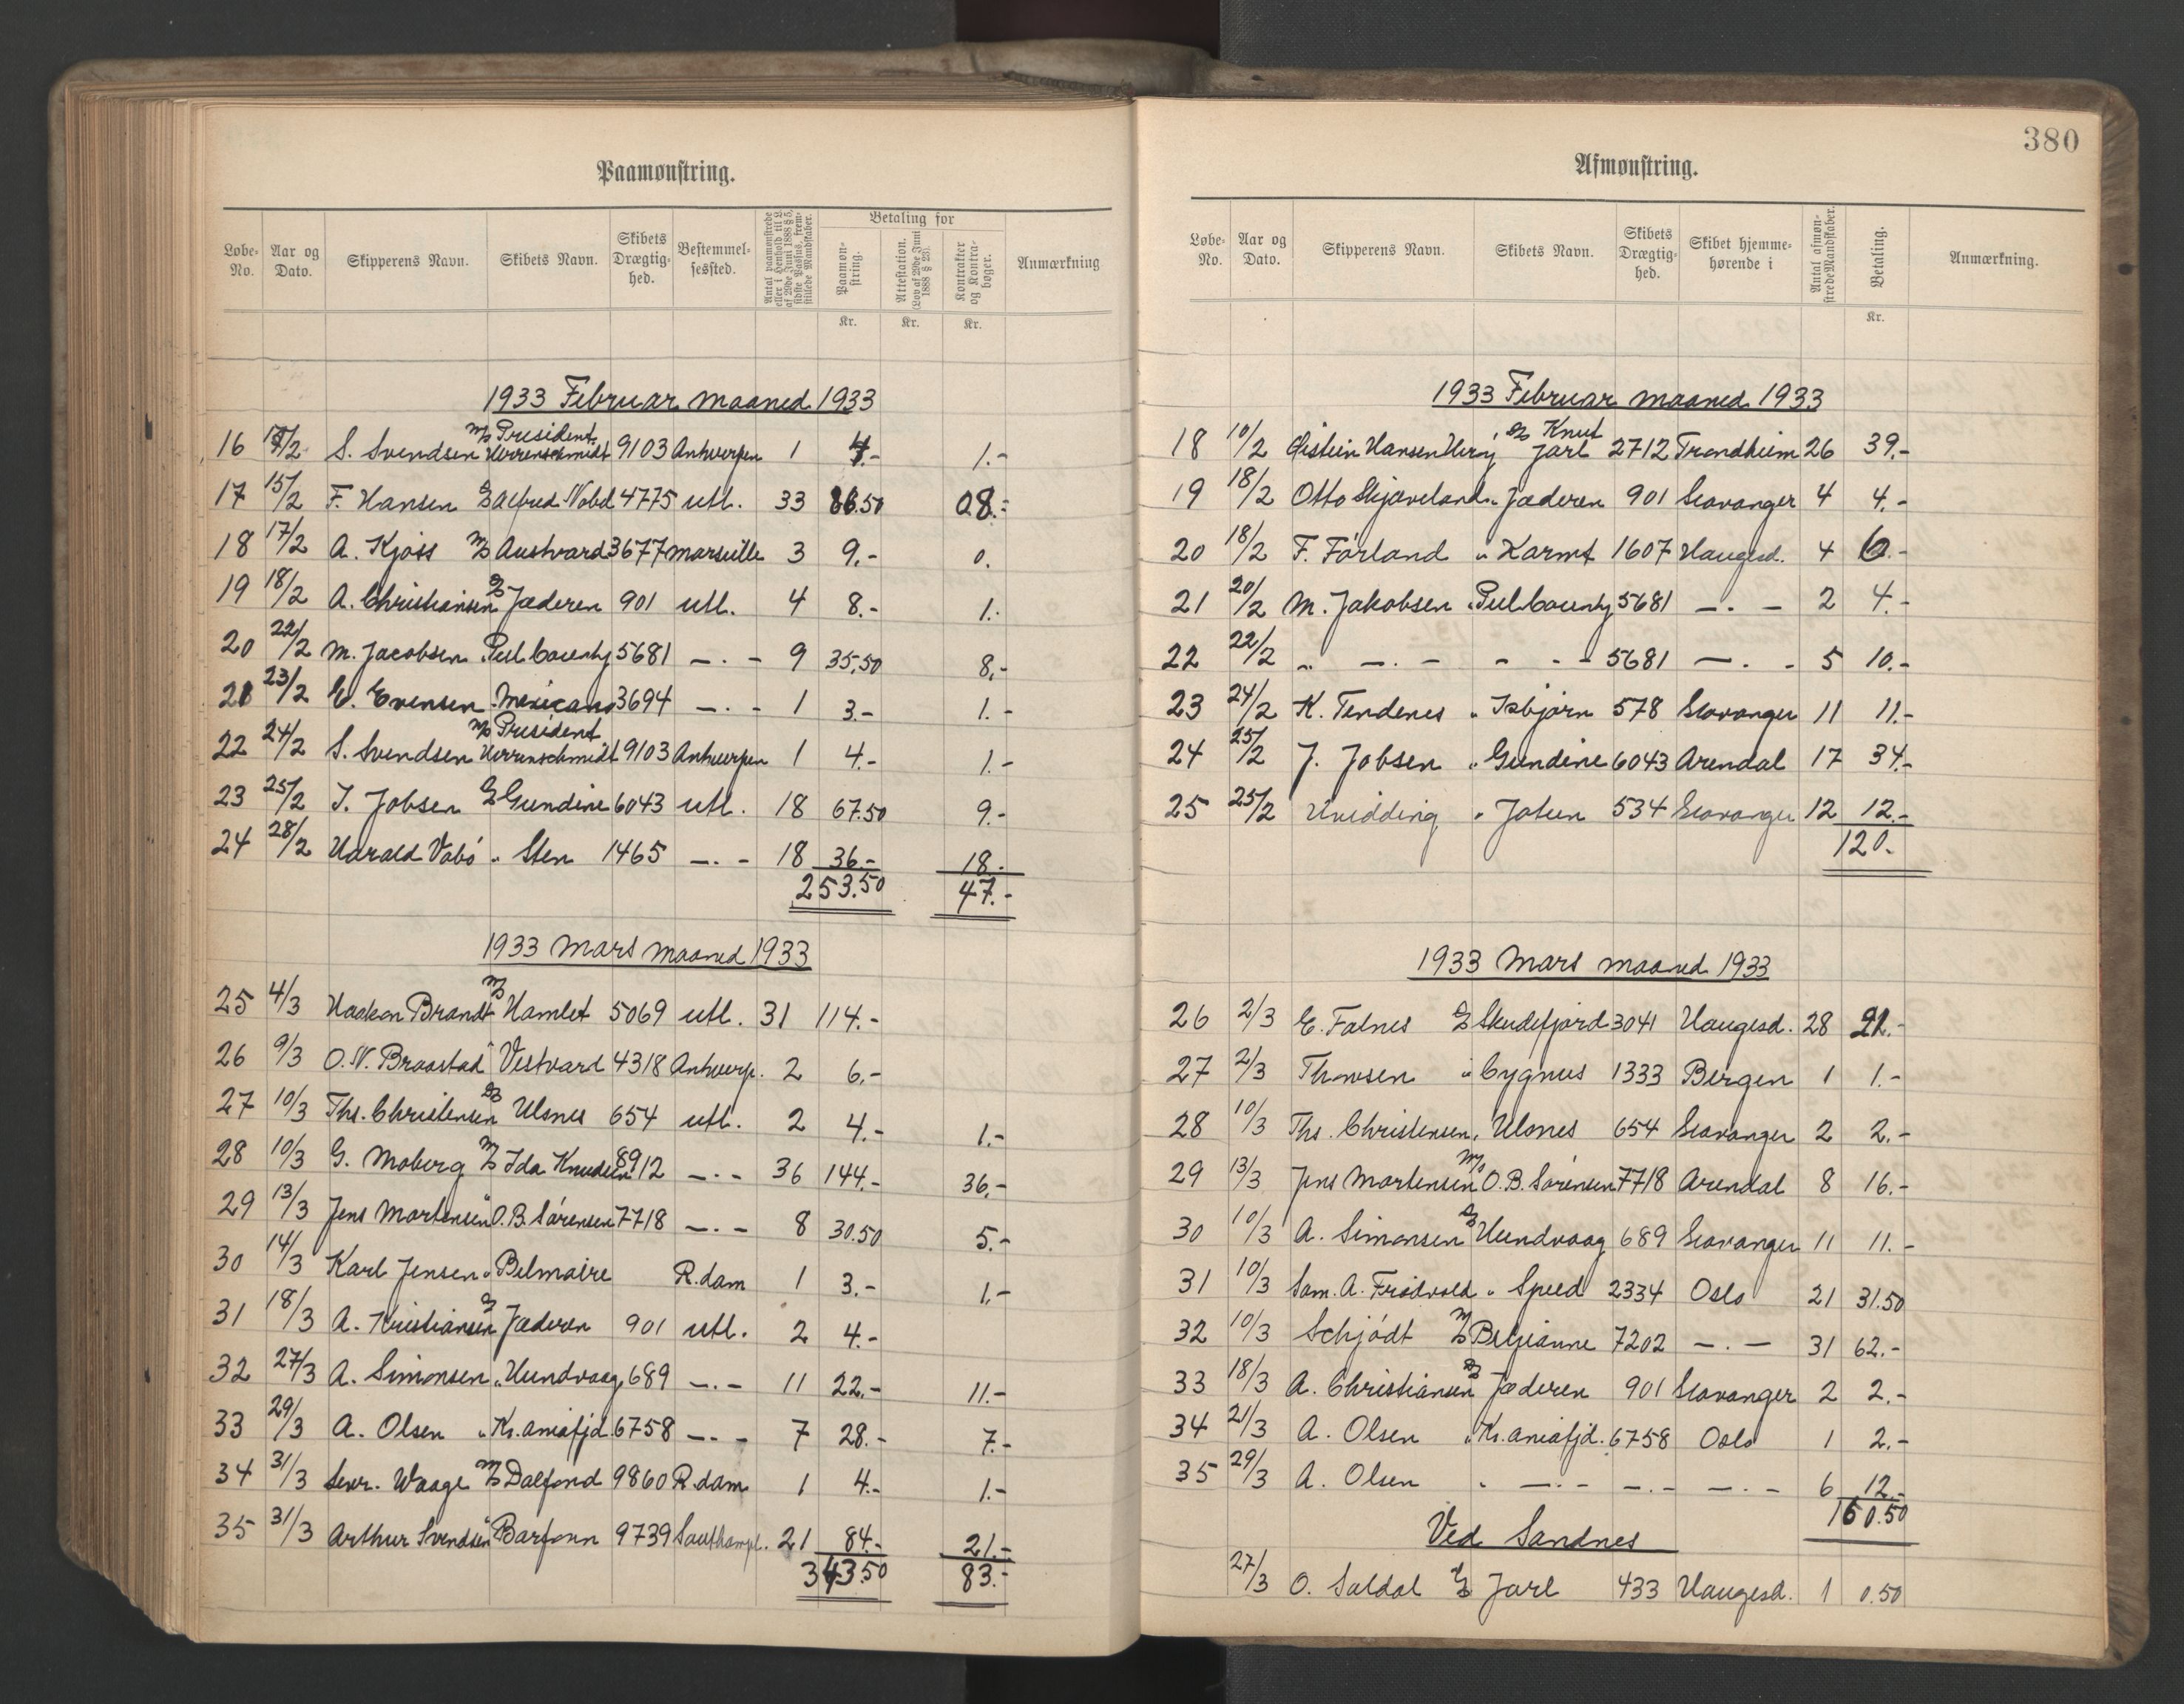 380
Paamønstring.
Løbe-No. Aar og Dato. Skipperens Navn. Skibets Navn. Skibets Drægtighed. Bestemmelsessted. Antal paamønstrede eller i Henhold til L. af 29de Juni 1888 § 5, sidste Passus, fremstillede Mandskaber. Betaling for Paamønstring. Attestation. (Lov af 29de Juni 1888 § 23). Kontrakter og Kontrabøger. Anmærkning
Kr. Kr. Kr.
1933 Februar maaned 1933
16 /2 S. Svendsen M/S President Herrenschmidt 9103 Antwerpen 1 4.- 1.-
17 15/2 F. Hansen S/S Alfred Nobel 4775 utl. 33 86.50 08.-
18 17/2 A. Kjøss M/S Austvard 3677 Marseille 3 9.- 0.
19 18/2 A. Christiansen S/S Jæderen 901 utl. 4 8.- 1.-
20 22/2 M. Jacobsen " Peel County 5681 —.— 9 35.50 8.-
21 23/2 E. Evensen " Mexicano 3694 —.— 1 3.- 1.-
22 24/2 S. Svendsen M/S President Herrenschmidt 9103 Antwerpen 1 4.- 1.-
23 25/2 J. Jobsen S/S Gundine 6043 utl. 18 67.50 9.-
24 28/2 Harald Vabö " Sten 1465 —.— 18 36.- 18.-
253.50 47.-
1933 Mars maaned 1933
25 4/3 Haakon Brandt M/S Hamlet 5069 utl. 31 114.-
26 9/3 O. N. Braastad " Vestvard 4318 Antwerp. 2 6.-
27 10/3 Ths. Christensen S/S Ulsnes 654 utl. 2 4.- 1.-
28 10/3 G. Moberg M/S Ida Knudsen 8912 —.— 36 144.- 36.-
29 13/3 Jens Mortensen " O. B. Sörensen 7718 —.— 8 30.50 5.-
30 14/3 Karl Jensen " Belmaire R.dam 1 3.- 1.-
31 18/3 A. Kristiansen S/S Jæderen 901 utl. 2 4.-
32 27/3 A. Simonsen " Hundvaag 689 —.— 11 22.- 11.-
33 29/3 A. Olsen " Kr.aniafjd. 6758 —.— 7 28.- 7.-
34 31/3 Sevr. Waage M/S Dalfonn 9860 R.dam 1 4.- 1.-
35 31/3 Arthur Svendsen " Barfonn 9739 Southampt. 21 84.- 21.-
343.50 83.-
Afmønstring.
Løbe-No. Aar og Dato. Skipperens Navn. Skibets Navn. Skibets Drægtighed. Skibet hjemmehørende i Antal afmønstrede Mandskaber. Betaling. Anmærkning.
Kr.
1933 Februar maaned 1933
18 10/2 Øistein Hansen S/S Knut Jarl 2712 Trondheim 26 39.-
19 18/2 Otto Skjæveland " Jæderen 901 Stavanger 4 4.-
20 18/2 F. Förland " Karmt 1607 Haugesd. 4 6.-
21 20/2 M. Jakobsen " Peel County 5681 —.— 2 4.-
22 22/2 " —.— - - - 5681 —.— 5 10.-
23 24/2 K. Tendenes " Isbjørn 578 Stavanger 11 11.-
24 25/2 J. Jobsen " Gundine 6043 Arendal 17 34.-
25 25/2 Hvidding " Jatun 534 Stavanger 12 12.-
120.
1933 Mars maaned 1933
26 2/3 E. Falnes S/S Skudefjord 3041 Haugesd. 28 21.-
27 2/3 Thomsen " Cygnus 1333 Bergen 1 1.-
28 10/3 Ths. Christensen " Ulsnes 654 Stavanger 2 2.-
29 13/3 Jens Mortensen M/S O. B. Sörensen 7718 Arendal 8 16.-
30 10/3 A. Simonsen S/S Hundvaag 689 Stavanger 11 11.-
31 10/3 Sam. A. Frödvold " Speed 2334 Oslo 21 31.50
32 10/3 Schjödt M/S Brajianne 7202 —.— 31 62.-
33 18/3 A. Christiansen S/S Jæderen 901 Stavanger 2 2.-
34 21/3 A. Olsen " Kr.aniafjd. 6758 Oslo 1 2.-
35 29/3 A. Olsen " —.— —.— —.— 6 12.-
160.50
Ved Sandnes
27/3 O. Saldal S/S Jarl 433 Haugesd. 1 0.50